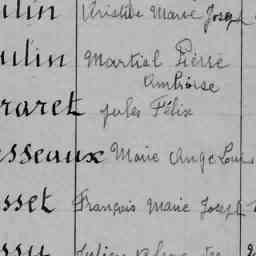 ulin Christine Marie Joseph
ulin Martial Pierre
Ambroise
raret Jules Félix
sseaux Marie Ange Louis
sset François Marie Joseph
Julien